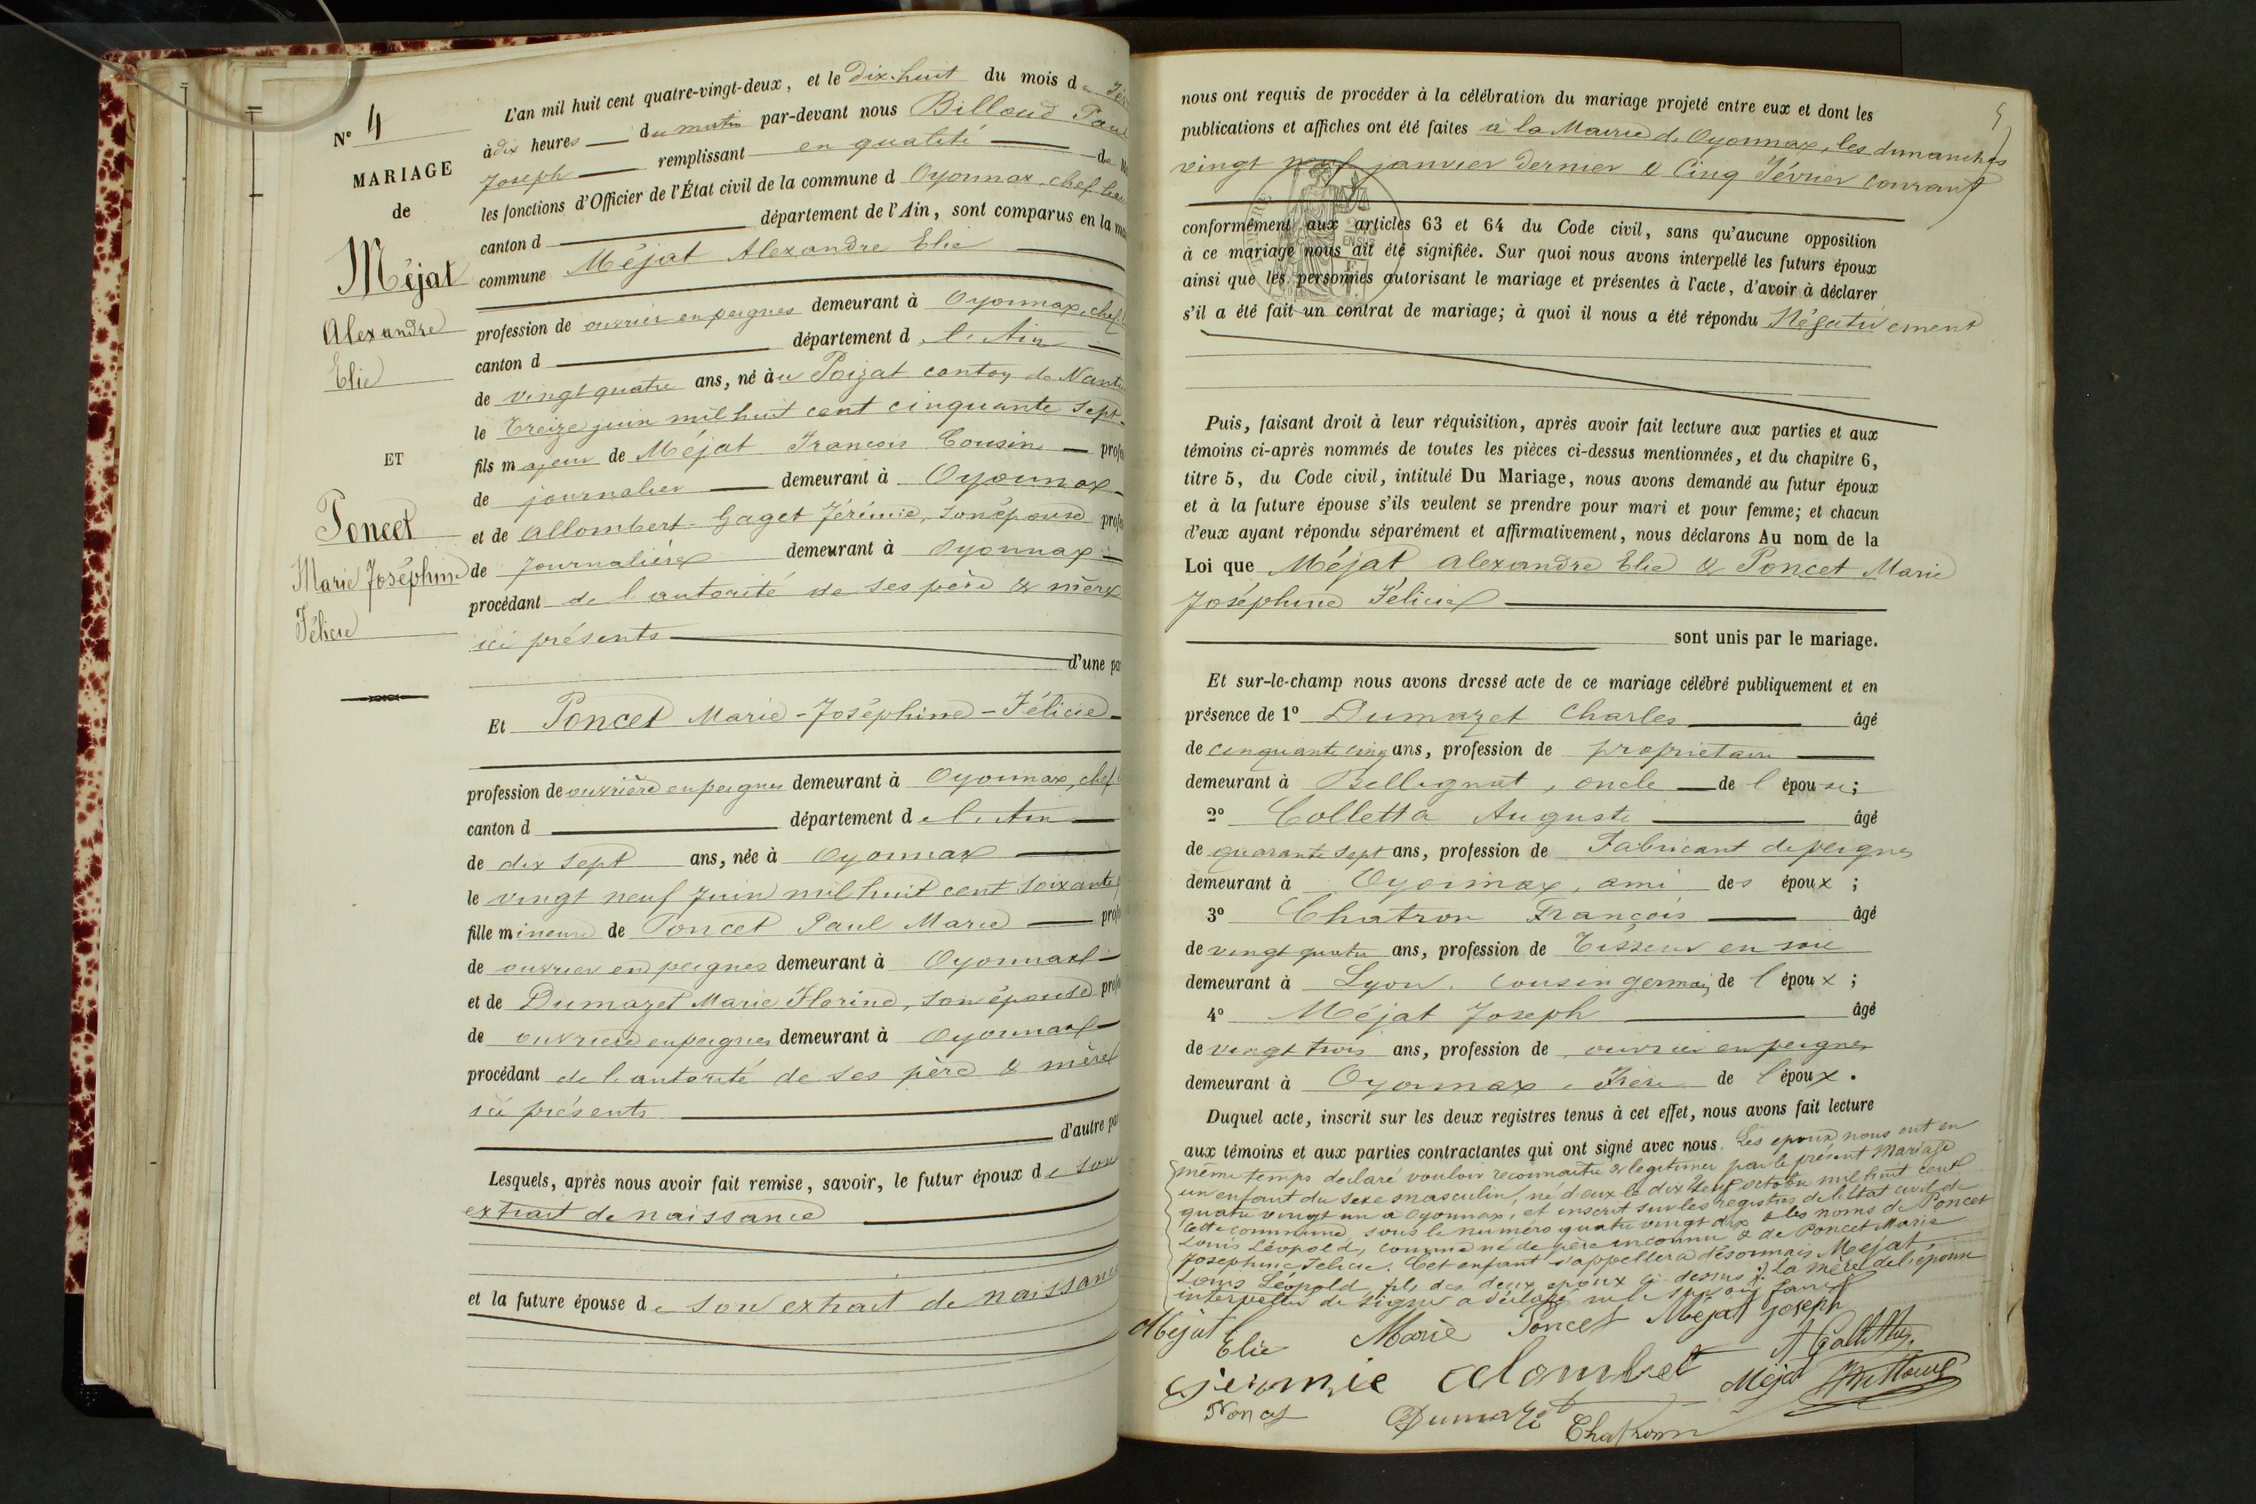 N° 4
MARIAGE
de
Méjat
Alexandre
Elie
ET
Poncet
Marie Joséphine
Félicie
L'an mil huit cent quatre-vingt-deux, et le Dix-huit du mois de Fév
à dix heures du matin par-devant nous Billoud Paul
Joseph remplissant en qualité de
les fonctions d'Officier de l'État civil de la commune d Oyonnax, chef lieu
canton d département de l'Ain, sont comparus en la
commune Méjat Alexandre Elie
profession de ouvrier en peignes demeurant à Oyonnax, chef
canton d département de l'Ain
de vingt quatre ans, né au Poizat canton de Nantua
le Treize juin mil huit cent cinquante sept
fils majeur de Méjat François Cousin prof
de journalier demeurant à Oyonnax
et de Allombert-Gaget Jérémie, son épouse prof
de Journalière demeurant à Oyonnax
procédant de l'autorité de ses père & mère
ici présents
d'une pa
Et Poncet Marie-Joséphine-Félicie
profession de ouvrière en peignes demeurant à Oyonnax, chef
canton d département de l'Ain
de dix sept ans, née à Oyonnax
le vingt neuf Juin mil huit cent soixante
fille mineure de Poncet Paul Marie prof
de ouvrier en peignes demeurant à Oyonnax
et de Dumazet Marie Florine, son épouse prof
de ouvrière en peignes demeurant à Oyonnax
procédant de l'autorité de ses père & mère
ici présents
d'autre pa
Lesquels, après nous avoir fait remise, savoir, le futur époux de son
extrait de naissance
et la future épouse de son extrait de naissance
nous ont requis de procéder à la célébration du mariage projeté entre eux et dont les
publications et affiches ont été faites à la Mairie de Oyonnax, les dimanches
vingt neuf janvier dernier & Cinq Février courant
conformément aux articles 63 et 64 du Code civil, sans qu'aucune opposition
à ce mariage nous ait été signifiée. Sur quoi nous avons interpellé les futurs époux
ainsi que les personnes autorisant le mariage et présentes à l'acte, d'avoir à déclarer
s'il a été fait un contrat de mariage; à quoi il nous a été répondu Négativement
Puis, faisant droit à leur réquisition, après avoir fait lecture aux parties et aux
témoins ci-après nommés de toutes les pièces ci-dessus mentionnées, et du chapitre 6,
titre 5, du Code civil, intitulé Du Mariage, nous avons demandé au futur époux
et à la future épouse s'ils veulent se prendre pour mari et pour femme; et chacun
d'eux ayant répondu séparément et affirmativement, nous déclarons Au nom de la
Loi que Méjat Alexandre Elie & Poncet Marie
Joséphine Félicie
sont unis par le mariage.
Et sur-le-champ nous avons dressé acte de ce mariage célébré publiquement et en
présence de 1° Dumazet Charles âgé
de cinquante cinq ans, profession de propriétaire
demeurant à Bellignat, oncle de l'épouse;
2° Colletta Auguste âgé
de quarante sept ans, profession de Fabricant de peignes
demeurant à Oyonnax, ami des époux;
3° Chatron François âgé
de vingt quatre ans, profession de Tisseur en soie
demeurant à Lyon, cousin germain de l'époux;
4° Méjat Joseph âgé
de vingt trois ans, profession de ouvrier en peignes
demeurant à Oyonnax, frère de l'époux.
Duquel acte, inscrit sur les deux registres tenus à cet effet, nous avons fait lecture
aux témoins et aux parties contractantes qui ont signé avec nous. Les époux nous ont en
même temps déclaré vouloir reconnaître & légitimer par le présent Mariage
un enfant du sexe masculin, né d'eux le dix neuf octobre mil huit cent
quatre vingt un à Oyonnax, et inscrit sur les registres de l'état civil de
cette commune sous le numéro quatre vingt dix & les noms de Poncet
Louis Léopold, comme né de père inconnu & de Poncet Marie
Joséphine Félicie. Cet enfant s'appellera désormais Méjat
Louis Léopold, fils des deux époux ci-dessus. La mère de l'épouse
interpellée de signer a déclaré ne le savoir faire
Méjat Elie Marie Poncet Méjat Joseph
Jeromie alombert Méjat
Poncet Dumazet Chatron